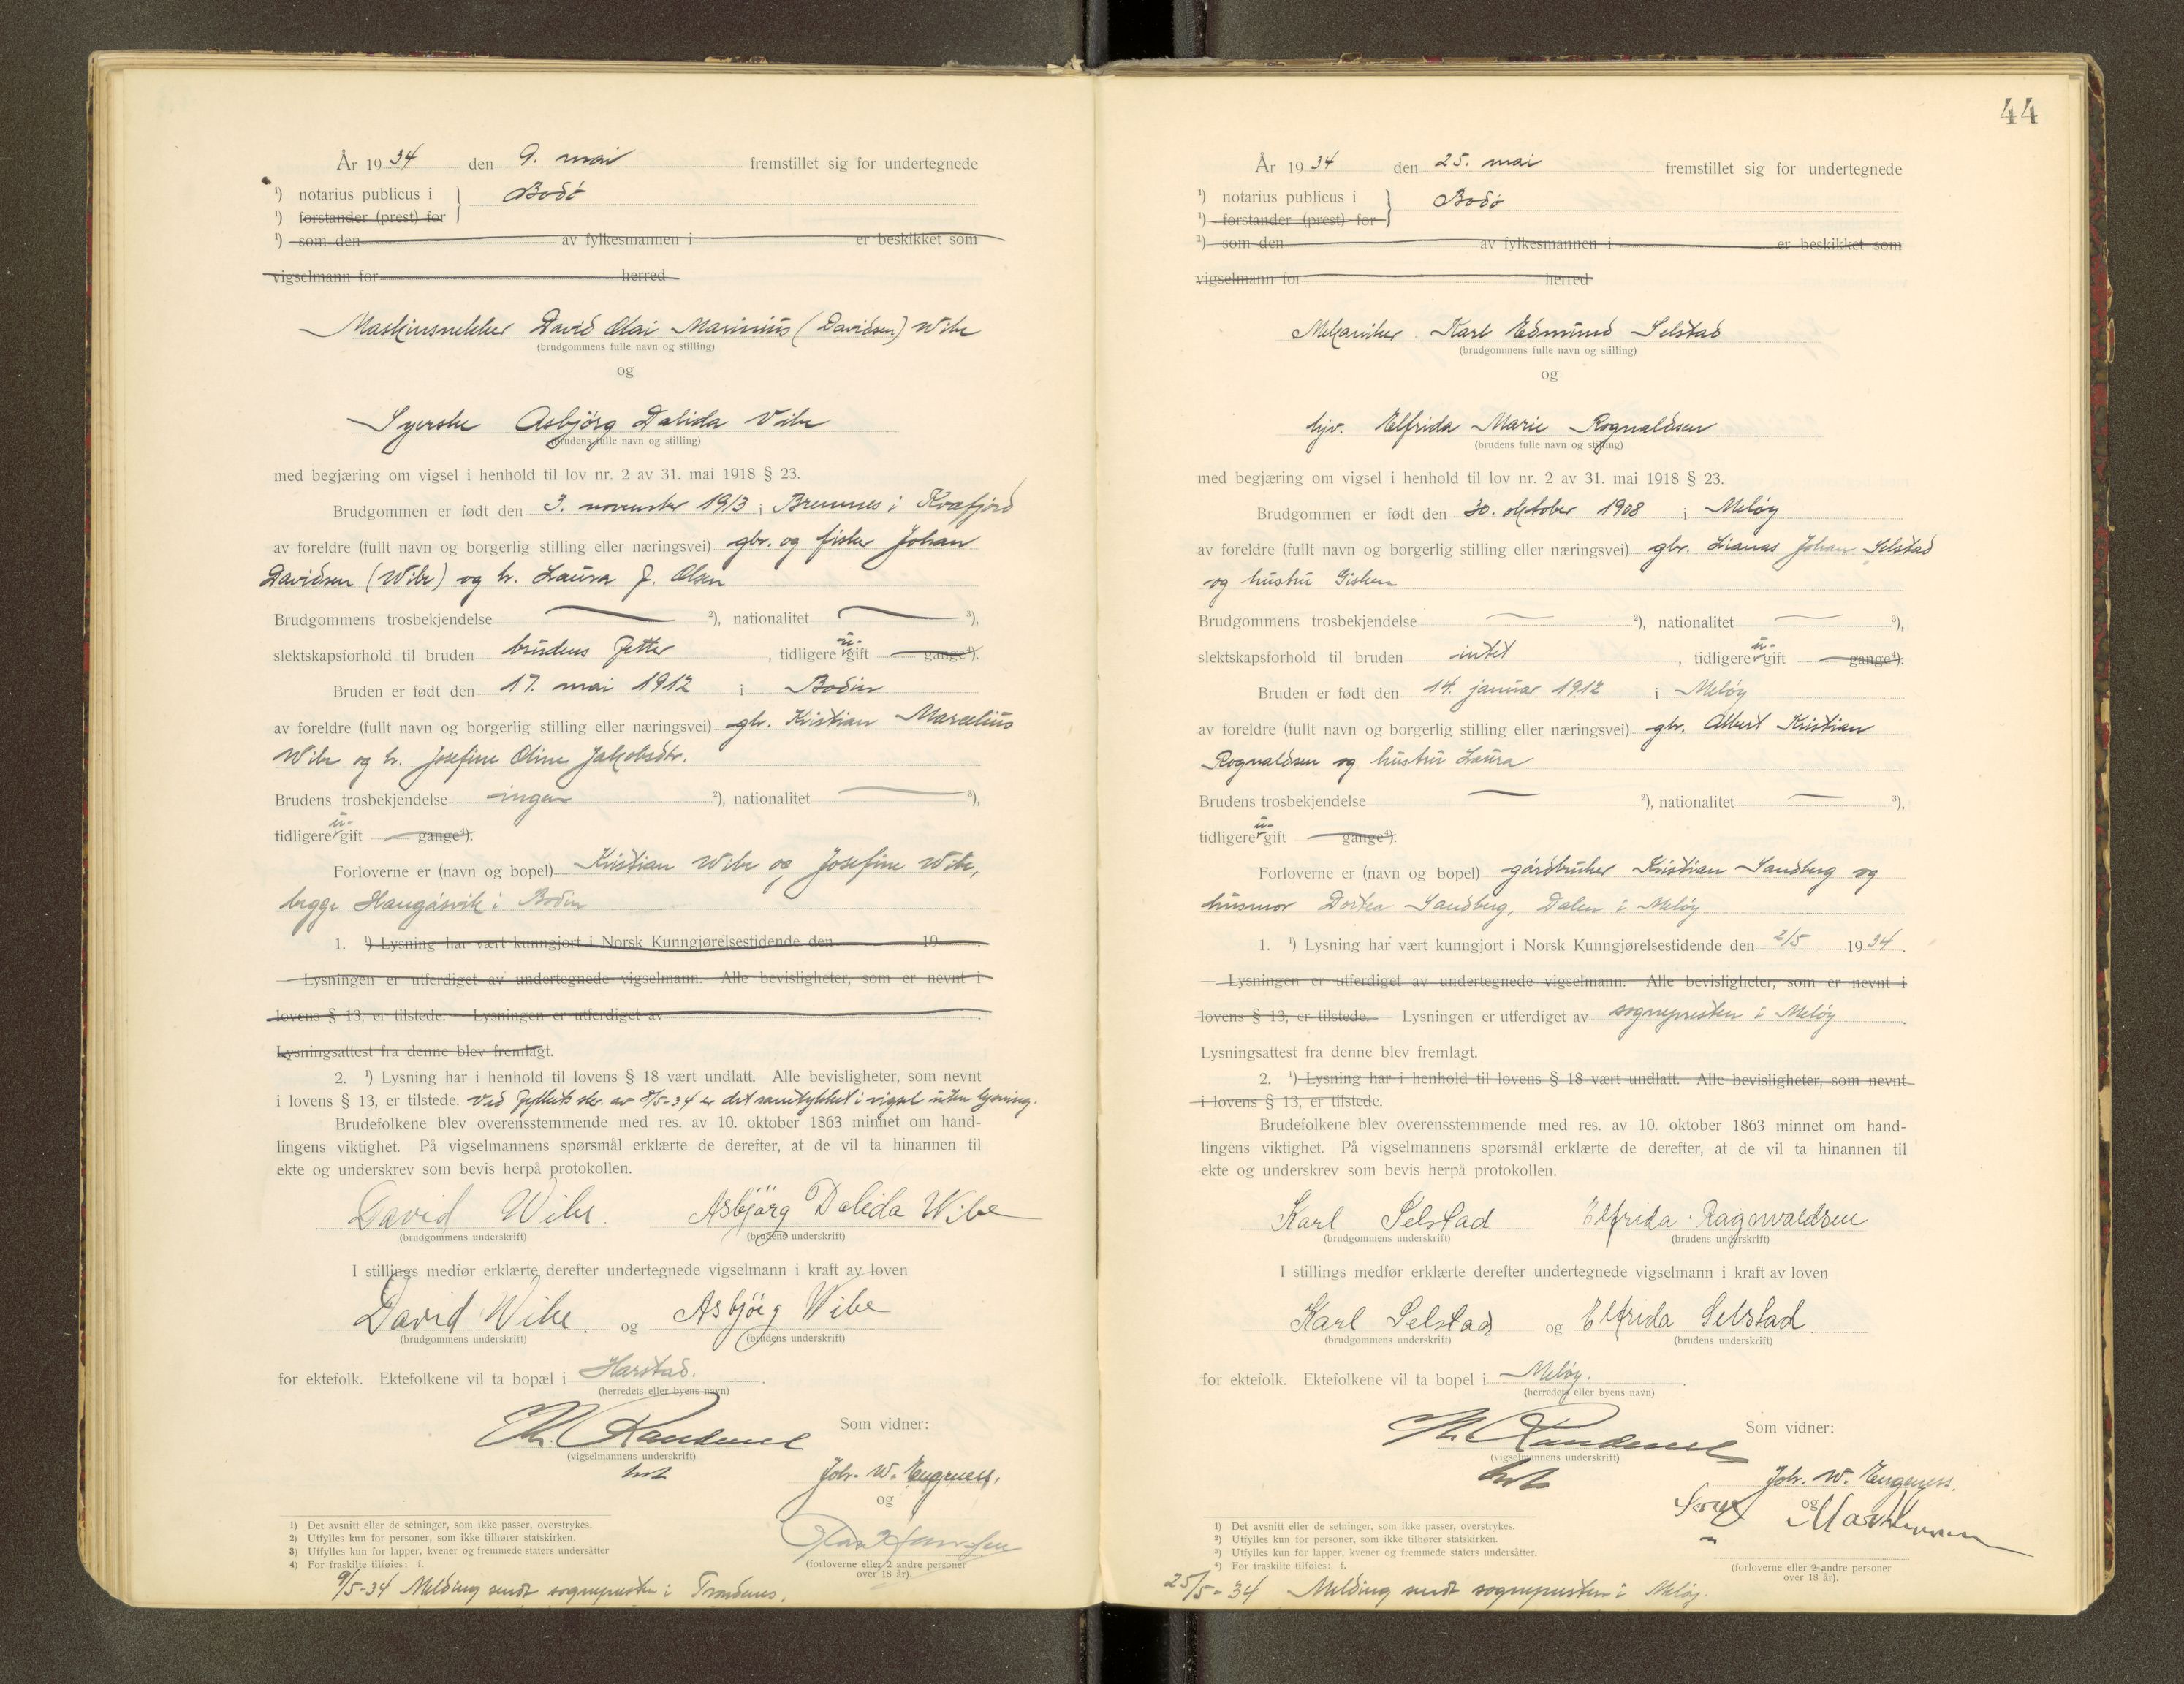 År 1934 den 9. mai fremstillet sig for undertegnede
¹) notarius publicus i } Bodø
¹) forstander (prest) for
¹) som den av fylkesmannen i er beskikket som
vigselmann for herred
Maskinsnekker David Olai Marinius (Davidsen) Wibe
(brudgommens fulle navn og stilling)
og
Syerske Asbjørg Dalida Vibe
(brudens fulle navn og stilling)
med begjæring om vigsel i henhold til lov nr. 2 av 31. mai 1918 § 23.
Brudgommen er født den 3. november 1913 i Bremnes i Kvæfjord
av foreldre (fullt navn og borgerlig stilling eller næringsvei) gbr. og fisker Johan
Davidsen (Wibe) og h. Laura J. Olsen
Brudgommens trosbekjendelse ²), nationalitet ³),
slektskapsforhold til bruden brudens fetter, tidligere u-gift gange⁴).
Bruden er født den 17. mai 1912 i Bodin
av foreldre (fullt navn og borgerlig stilling eller næringsvei) gbr. Kristian Marcelius
Wibe og h. Josefine Oline Jakobsdtr.
Brudens trosbekjendelse ingen ²), nationalitet ³),
tidligere u-gift gange⁴).
Forloverne er (navn og bopel) Kristian Wibe og Josefine Wibe,
begge Haugåsvik i Bodin
1. ¹) Lysning har vært kunngjort i Norsk Kunngjørelsestidende den 19 .
Lysningen er utferdiget av undertegnede vigselmann. Alle bevisligheter, som er nevnt i
lovens § 13, er tilstede. — Lysningen er utferdiget av .
Lysningsattest fra denne blev fremlagt.
2. ¹) Lysning har i henhold til lovens § 18 vært undlatt. Alle bevisligheter, som nevnt
i lovens § 13, er tilstede. Ved fylkets skr. av 8/5-34 er det samtykket i vigsel uten lysning.
Brudefolkene blev overensstemmende med res. av 10. oktober 1863 minnet om hand-
lingens viktighet. På vigselmannens spørsmål erklærte de derefter, at de vil ta hinannen til
ekte og underskrev som bevis herpå protokollen.
David Wibe. Asbjørg Dalida Wibe
(brudgommens underskrift) (brudens underskrift)
I stillings medfør erklærte derefter undertegnede vigselmann i kraft av loven
David Wibe. og Asbjörg Wibe
(brudgommens underskrift) (brudens underskrift)
for ektefolk. Ektefolkene vil ta bopæl i Harstad.
(herredets eller byens navn)
Som vidner:
(vigselmannens underskrift)
Joh. W. Engeness.
og
(forloverne eller 2 andre personer
over 18 år).
1) Det avsnitt eller de setninger, som ikke passer, overstrykes.
2) Utfylles kun for personer, som ikke tilhører statskirken.
3) Utfylles kun for lapper, kvener og fremmede staters undersåtter
4) For fraskilte tilføies: f.
9/5-34 Melding sendt sognepresten i Trondenes.
44
År 1934 den 25. mai fremstillet sig for undertegnede
¹) notarius publicus i } Bodø
¹) forstander (prest) for
¹) som den av fylkesmannen i er beskikket som
vigselmann for herred
Mekaniker Karl Edmund Selstad
(brudgommens fulle navn og stilling)
og
hjv. Elfrida Marie Rognaldsen
(brudens fulle navn og stilling)
med begjæring om vigsel i henhold til lov nr. 2 av 31. mai 1918 § 23.
Brudgommen er født den 30. oktober 1908 i Meløy
av foreldre (fullt navn og borgerlig stilling eller næringsvei) gbr. Johan Selstad
og hustru Gisken
Brudgommens trosbekjendelse ²), nationalitet ³),
slektskapsforhold til bruden intet, tidligere u-gift gange⁴).
Bruden er født den 14. januar 1912 i Meløy
av foreldre (fullt navn og borgerlig stilling eller næringsvei) gbr. Albert Kristian
Rognaldsen og hustru Laura
Brudens trosbekjendelse ²), nationalitet ³),
tidligere u-gift gange⁴).
Forloverne er (navn og bopel) gårdbruker Kristian Sandberg og
husmor Dortea Sandberg, Dalen i Meløy
1. ¹) Lysning har vært kunngjort i Norsk Kunngjørelsestidende den 2/5 1934.
Lysningen er utferdiget av undertegnede vigselmann. Alle bevisligheter, som er nevnt i
lovens § 13, er tilstede. — Lysningen er utferdiget av sognepresten i Meløy.
Lysningsattest fra denne blev fremlagt.
2. ¹) Lysning har i henhold til lovens § 18 vært undlatt. Alle bevisligheter, som nevnt
i lovens § 13, er tilstede.
Brudefolkene blev overensstemmende med res. av 10. oktober 1863 minnet om hand-
lingens viktighet. På vigselmannens spørsmål erklærte de derefter, at de vil ta hinannen til
ekte og underskrev som bevis herpå protokollen.
Karl Selstad Elfrida Ragnvaldsen
(brudgommens underskrift) (brudens underskrift)
I stillings medfør erklærte derefter undertegnede vigselmann i kraft av loven
Karl Selstad og Elfrida Selstad
(brudgommens underskrift) (brudens underskrift)
for ektefolk. Ektefolkene vil ta bopel i Meløy.
(herredets eller byens navn)
Som vidner:
(vigselmannens underskrift)
Joh. W. Engeness.
og
(forloverne eller 2 andre personer
over 18 år).
1) Det avsnitt eller de setninger, som ikke passer, overstrykes.
2) Utfylles kun for personer, som ikke tilhører statskirken.
3) Utfylles kun for lapper, kvener og fremmede staters undersåtter.
4) For fraskilte tilføies: f.
25/5-34 Melding sendt sognepresten i Meløy.